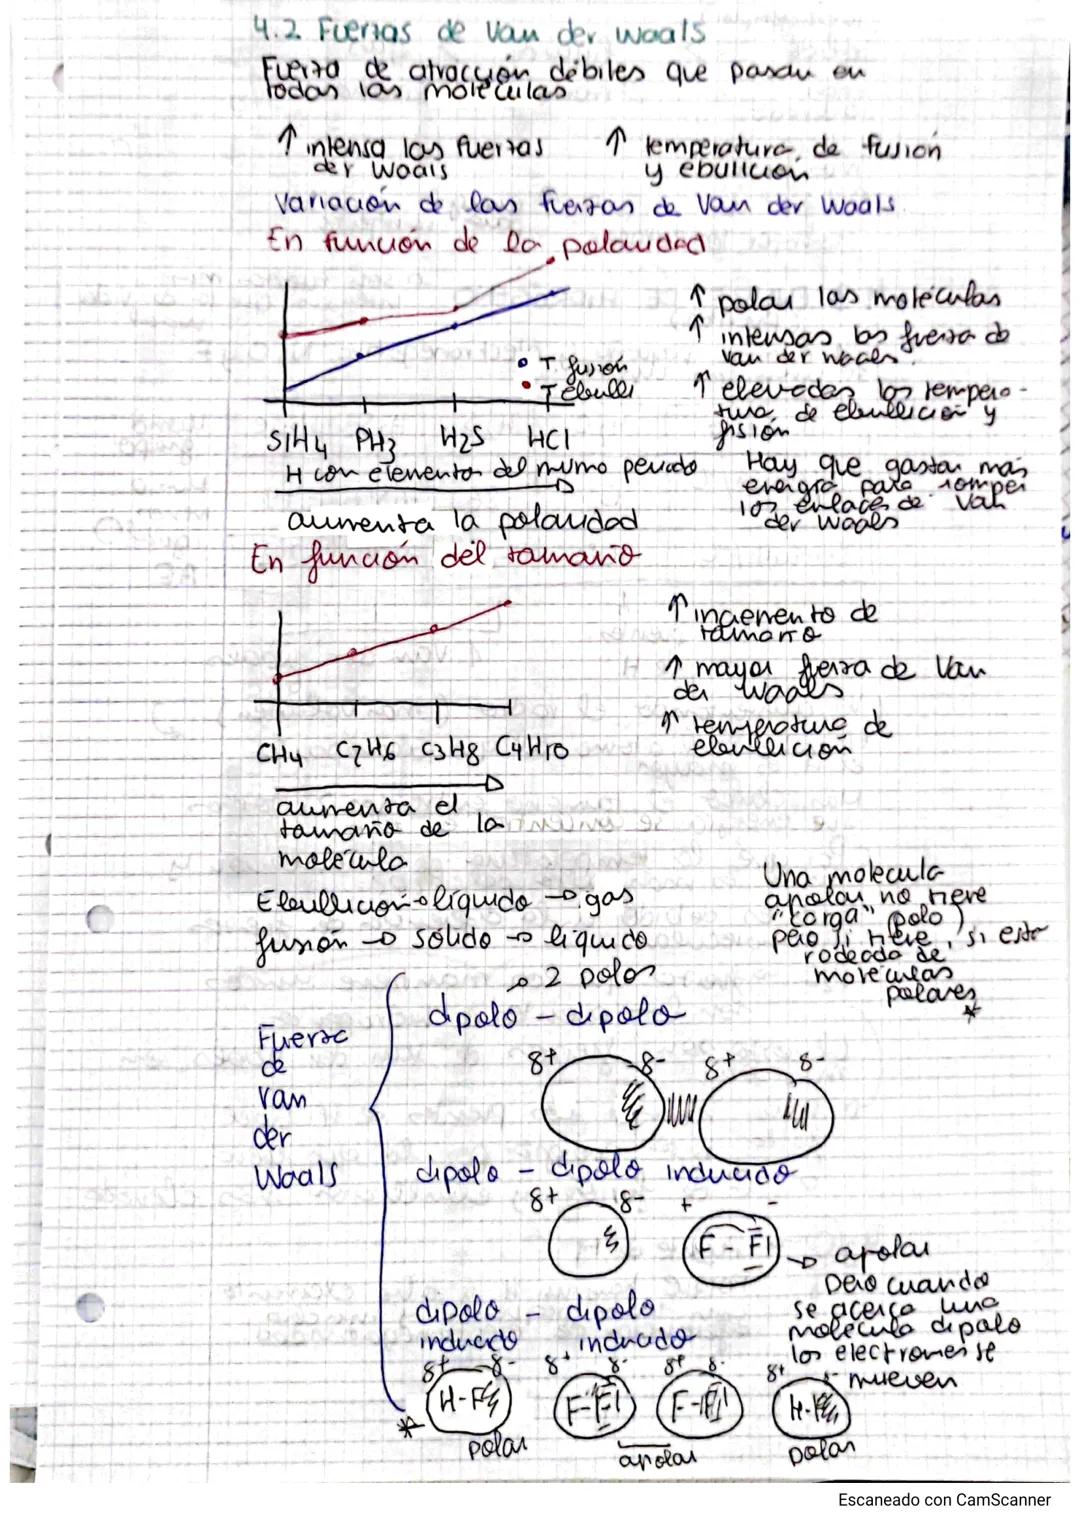 4.2 Fuerzas de Van der Waals
Fuerza de atracción débiles que pasan en
todas las moléculas
↑ intensa las fuerzas
der Waals
↑ temperatura de fusión
y ebullición
Variación de las fuerzas de Van der Waals
En función de la polaridad
• T fusión
• T ebulli
SiH4 PH3 H2S HCl
H con elementos del mismo periodo
aumenta la polaridad
↑ polar las moléculas
↑ intensas las fuerza de
Van der Waals
↑ elevadas las tempera-
tura de ebullición y
fisión
Hay que gastar más
energía para romper
los enlaces de Van
der Waals
En función del tamaño
CH4 C2H6 C3H8 C4H10
aumenta el
tamaño de la
molécula
↑ incremento de
tamaño
↑ mayor fuerza de Van
der Waals
↑ temperatura de
ebullición
Ebullición → líquido → gas
fusión → sólido → líquido
Una molecula
apolar no tiene
"carga" (polo)
pero si tiene, si esta
rodeada de
moléculas
polares
*
Fuerza
de
Van
der
Waals
→ 2 polos
dipolo - dipolo
δ+ δ- δ+ δ-
dipolo - dipolo inducido
δ+ δ- + -
F - F → apolar
pero cuando
se acerca una
molécula dipolo
los electrones se
mueven
dipolo - dipolo
inducido inducido
δ+ δ- δ+ δ- δ+ δ- δ+ δ-
* H-F F-F F-F H-F
polar apolar polar
Escaneado con CamScanner